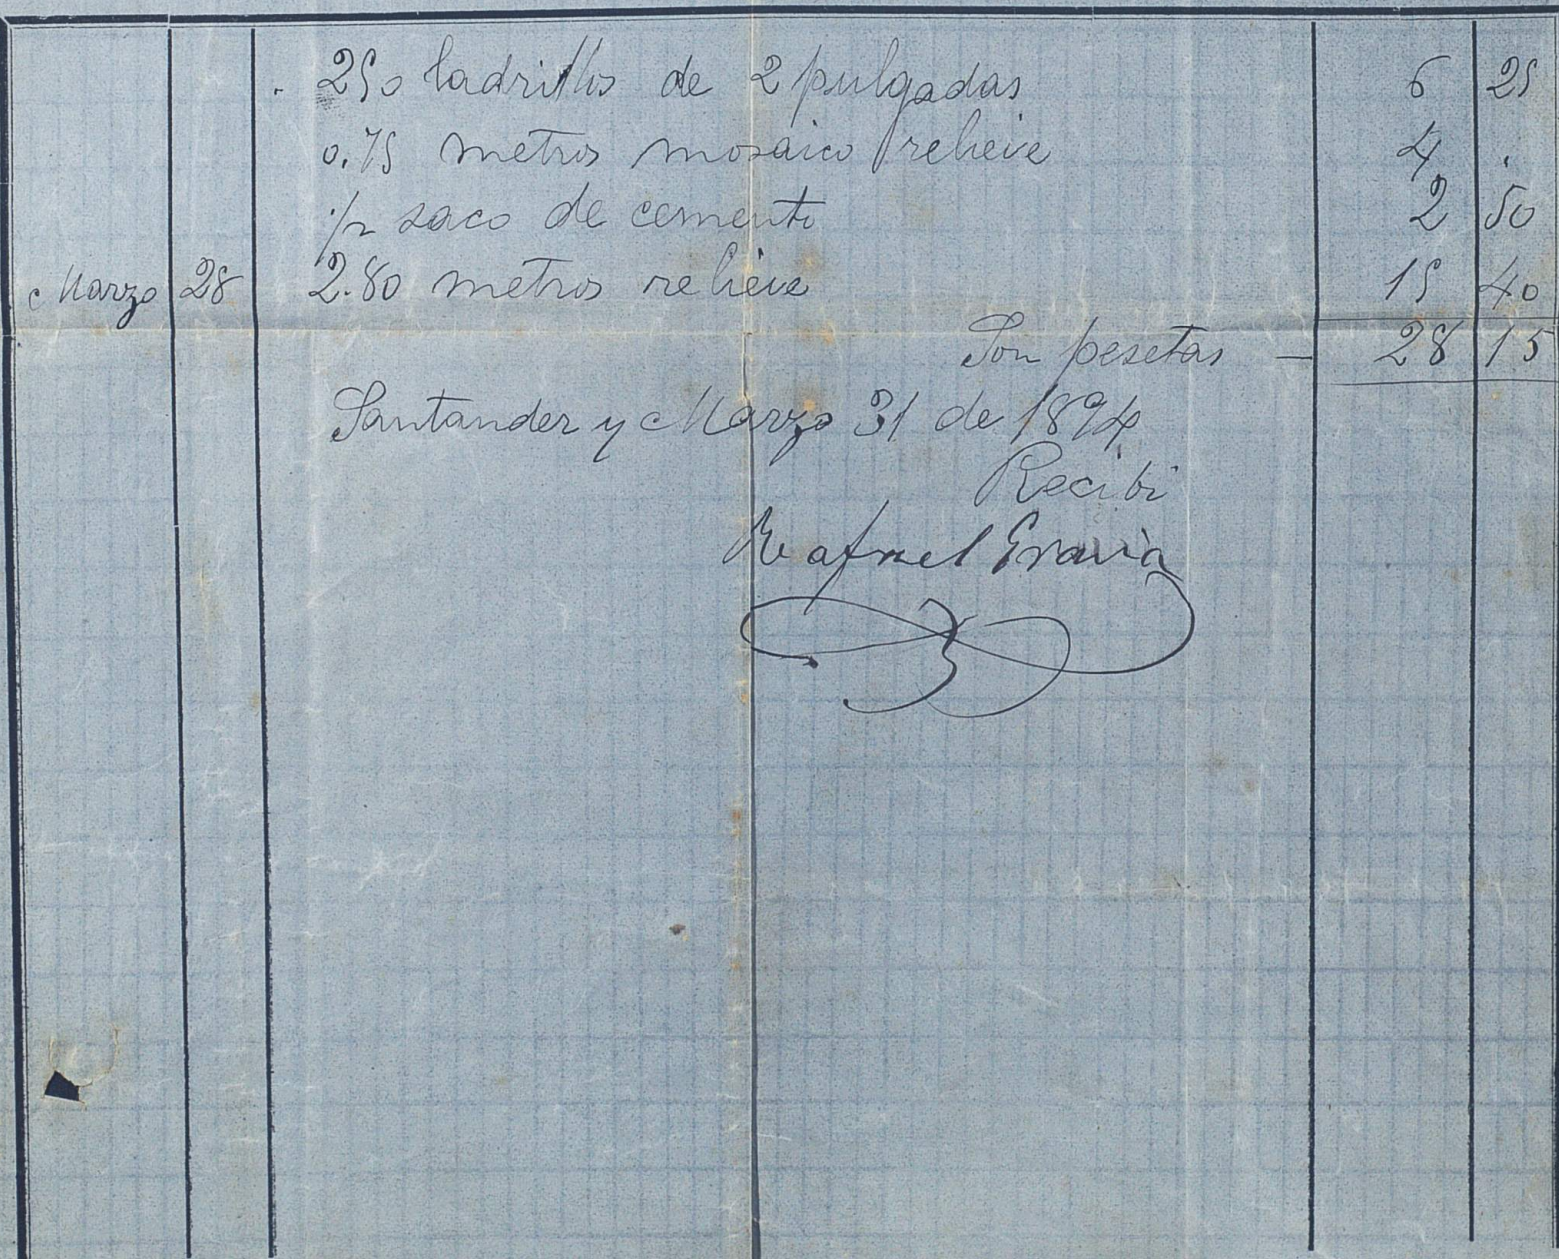 250 ladrillos de 2 pulgadas 6 25
0.75 metros mosaico relieve 4 .
1/2 saco de cemento 2 50
Marzo 28 2.80 metros relieve 15 40
Son pesetas — 28 15
Santander y Marzo 31 de 1894
Recibi
Rafael